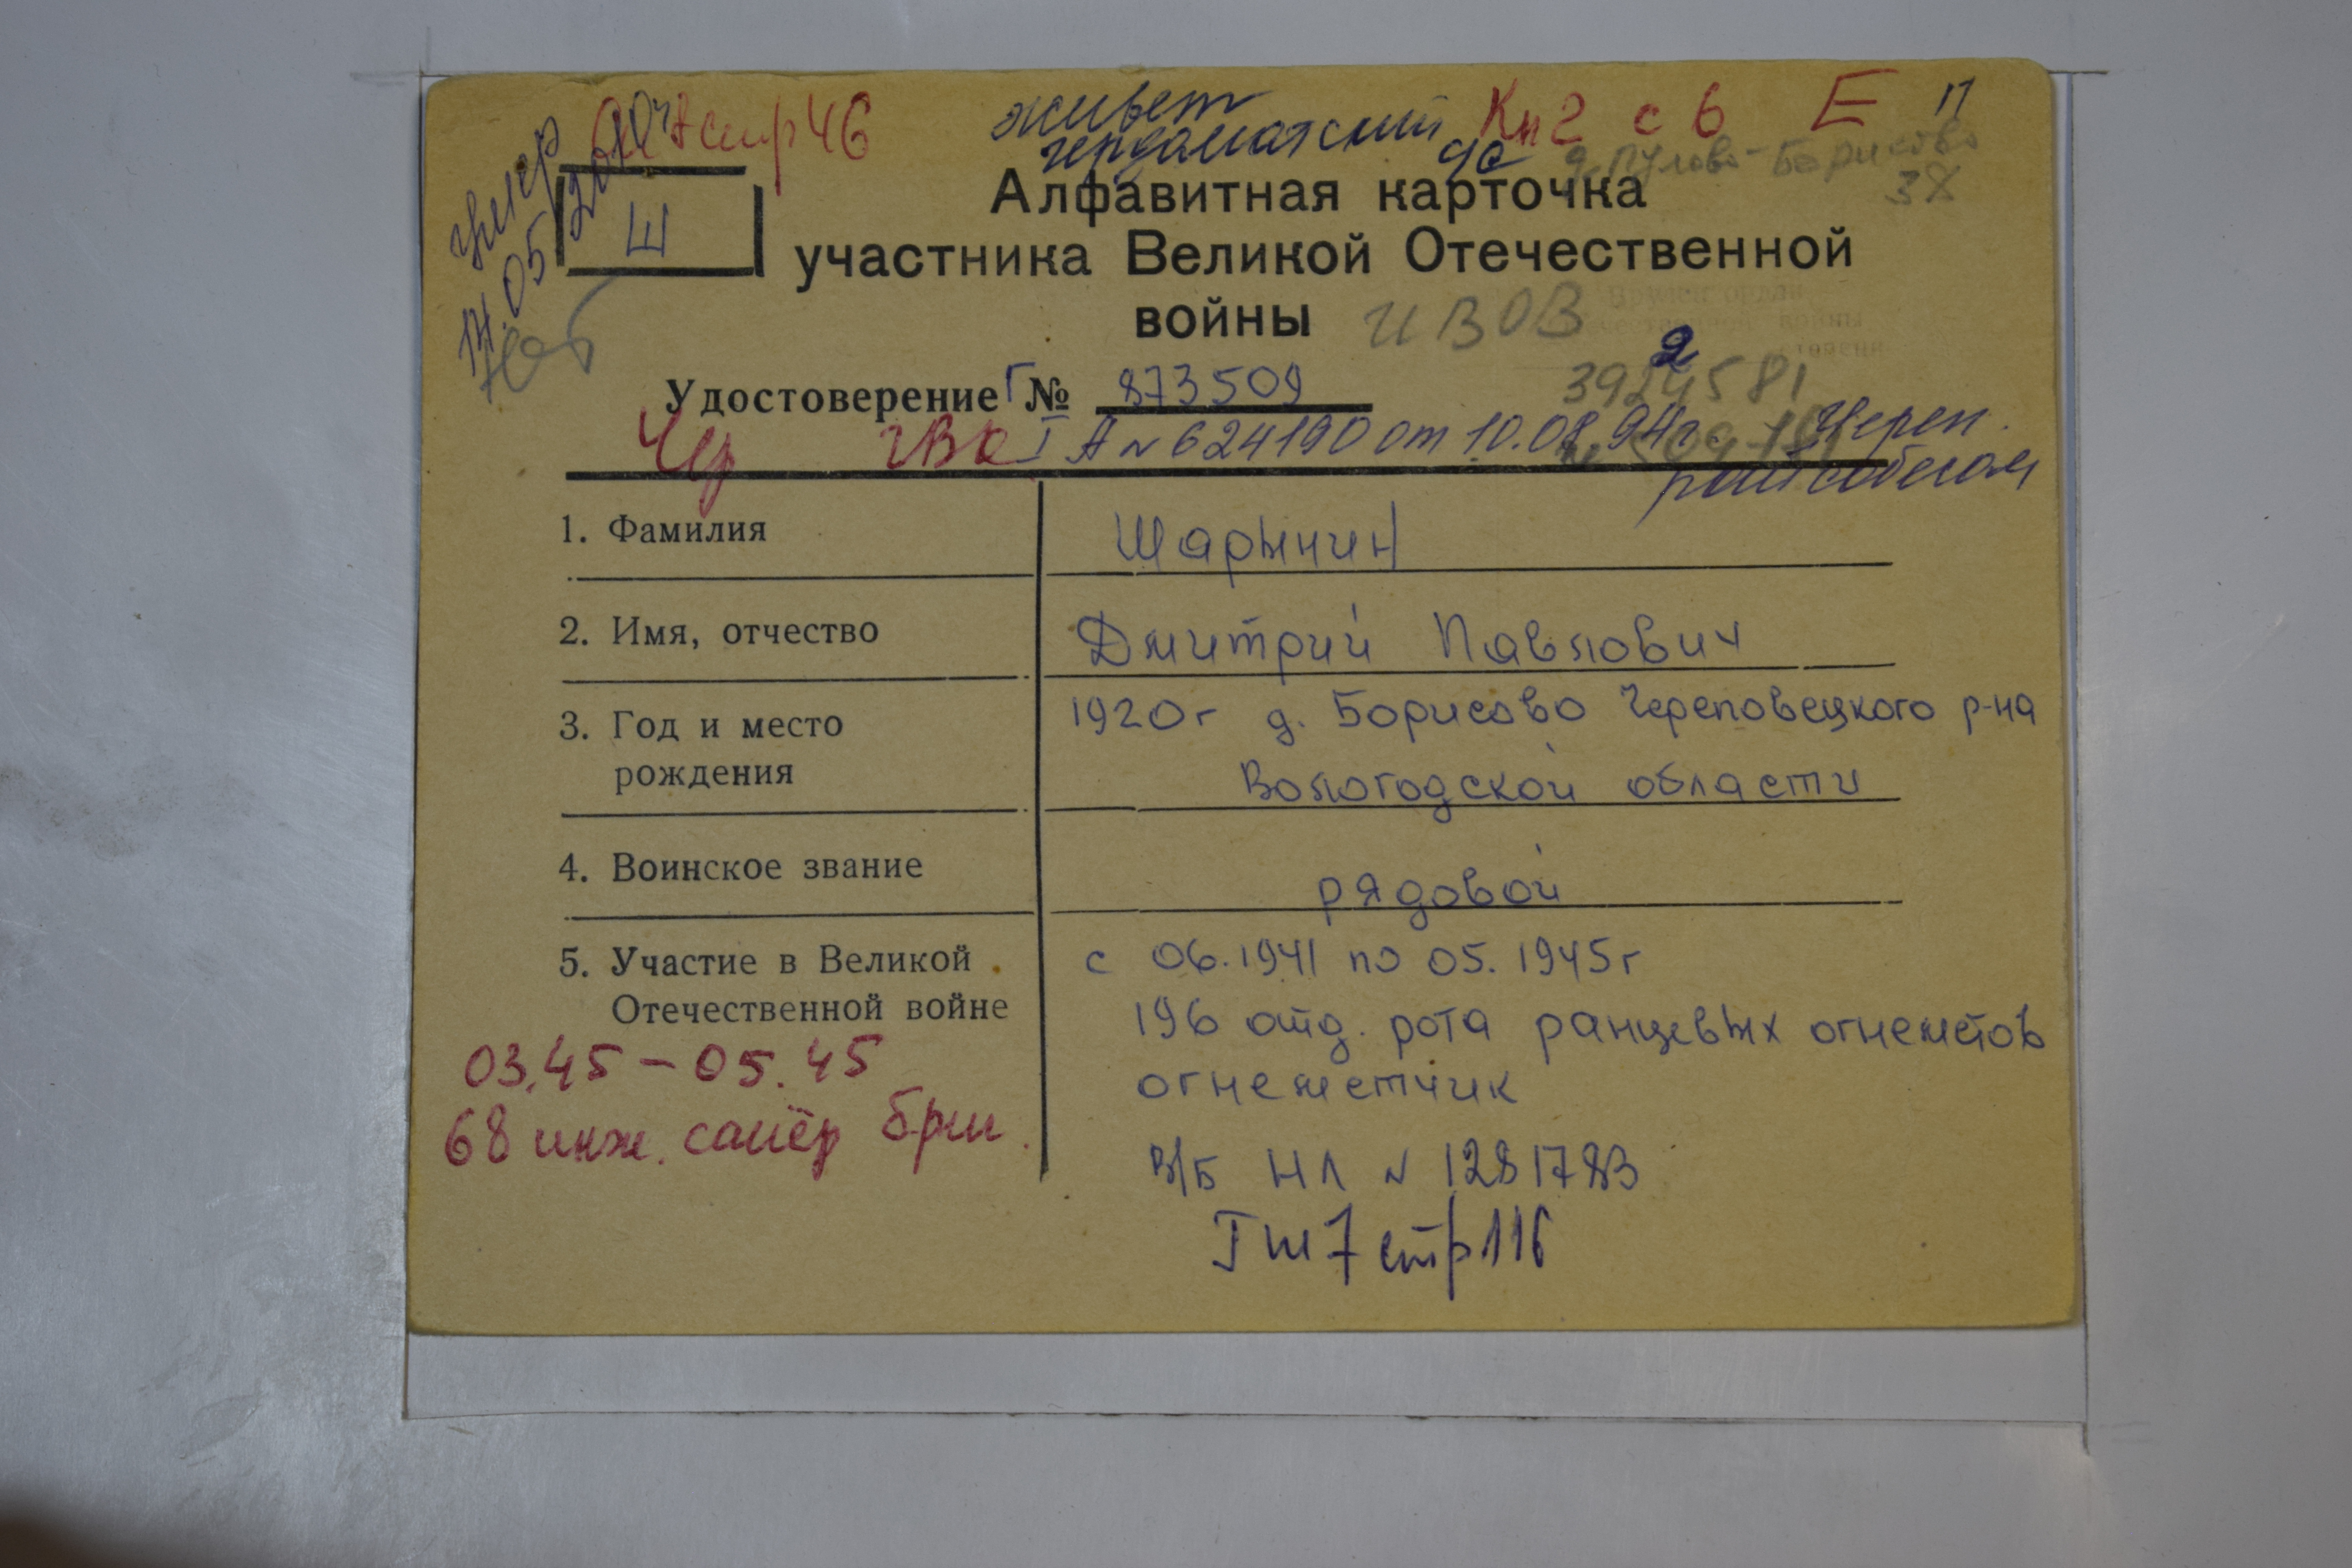 стр 46
живет Кн 2 с 6 Е П
чердоматский
д. Пулово-Борисово
38
умер
Ш
Алфавитная карточка
участника Великой Отечественной
войны ИВОВ
Нет
Удостоверение Г № 873509
Чер ГВК I А № 624190 от 10.08.94г. Череп.
райсобесом
1. Фамилия Шарынин
2. Имя, отчество Дмитрий Павлович
3. Год и место рождения 1920г д. Борисово Череповецкого р-на
Вологодской области
4. Воинское звание рядовой
5. Участие в Великой Отечественной войне с 06.1941 по 05.1945г
196 отд. рота ранцевых огнеметов
огнеметчик
03.45 – 05.45
68 инж. сапёр бриг.
В/Б НЛ № 1281783
Тш 7 стр 116